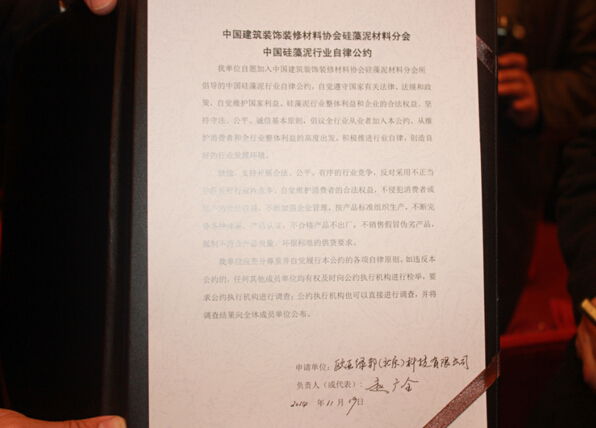 中国建筑装饰装修材料协会硅藻泥材料分会
中国硅藻泥行业自律公约
我单位自愿加入中国建筑装饰装修材料协会硅藻泥材料分会所
倡导的中国硅藻泥行业自律公约，自觉遵守国家有关法律、法规和政
策，自觉维护国家利益、硅藻泥行业整体利益和企业的合法权益。坚
持守法、公平、诚信基本原则，倡议全行业从业者加入本公约，从维
护消费者和全行业整体利益的高度出发，积极推进行业自律，创造良
好的行业发展环境。
支持开展合法、公平、有序的行业竞争，反对采用不正当
自觉维护消费者的合法权益，不侵犯消费者或
企业管理，按产品标准组织生产，不断完
不合格产品不出厂，不销售假冒伪劣产品，
环保利用的供货要求。
我单位应充分尊重并自觉履行本公约的各项自律原则。如违反本
公约的，任何其他成员单位均有权及时向公约执行机构进行检举，要
求公约执行机构进行调查；公约执行机构也可以直接进行调查，并将
调查结果向全体成员单位公布。
申请单位：欧亚绿邦（北京）科技有限公司
负责人（或代表）：赵广全
2014 年 11 月 19 日